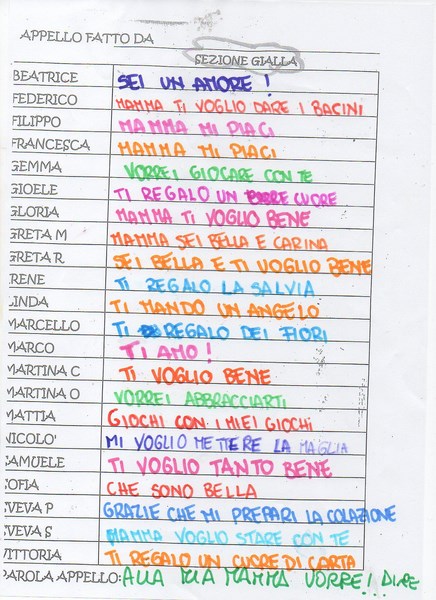 APPELLO FATTO DA
SEZIONE GIALLA
BEATRICE SEI UN AMORE!
FEDERICO MAMMA TI VOGLIO DARE I BACINI
FILIPPO MAMMA MI PIACI
FRANCESCA MAMMA MI PIACI
GEMMA VORREI GIOCARE CON TE
GIOELE TI REGALO UN CUORE
GLORIA MAMMA TI VOGLIO BENE
GRETA M MAMMA SEI BELLA E CARINA
GRETA R. SEI BELLA E TI VOGLIO BENE
RENE TI REGALO LA SALVIA
INDA TI MANDO UN ANGELO
MARCELLO TI REGALO DEI FIORI
MARCO TI AMO!
MARTINA C TI VOGLIO BENE
MARTINA O VORREI ABBRACCIARTI
MATTIA GIOCHI CON I MIEI GIOCHI
NICOLO' MI VOGLIO METTERE LA MAGLIA
SAMUELE TI VOGLIO TANTO BENE
SOFIA CHE SONO BELLA
EVEVA P GRAZIE CHE MI PREPARI LA COLAZIONE
EVEVA S MAMMA VOGLIO STARE CON TE
VITTORIA TI REGALO UN CUORE DI CARTA
PAROLA APPELLO: ALLA MIA MAMMA VORREI... DIRE